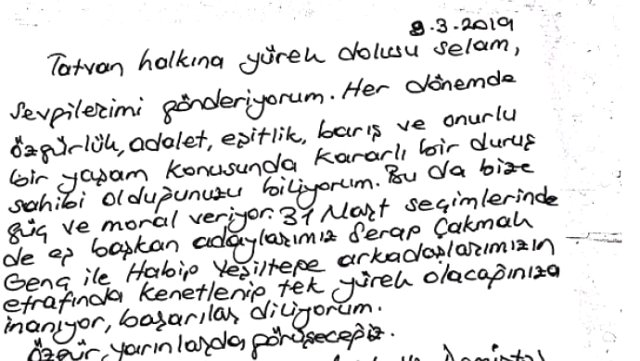 8.3.2019
Tatvan halkına yürek dolusu selam,
sevgilerimi gönderiyorum. Her dönemde
özgürlük, adalet, eşitlik, barış ve onurlu
bir yaşam konusunda kararlı bir duruş
sahibi olduğunuzu biliyorum. Bu da bize
güç ve moral veriyor. 31 Mart seçimlerinde
de eş başkan adaylarımız Serap Çakmak
Genç ile Habip Yeşiltepe arkadaşlarımızın
etrafında kenetlenip tek yürek olacağınıza
inanıyor, başarılar diliyorum.
Özgür yarınlarda görüşeceğiz.